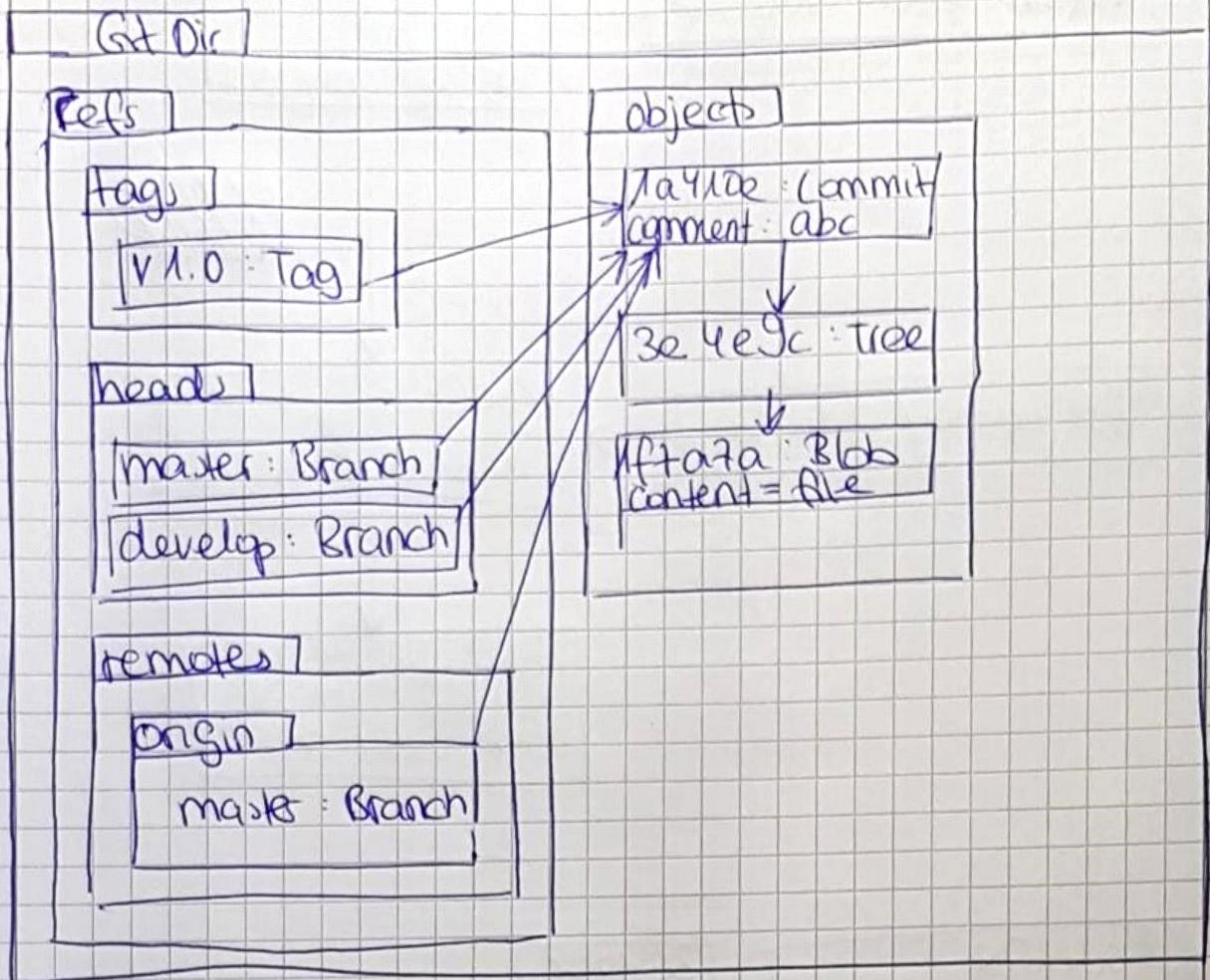 Git Dir
refs
tags
v1.0 : Tag
heads
master : Branch
develop : Branch
remotes
origin
master : Branch
objects
1a410e : Commit
comment : abc
3e4e9c : Tree
1f7a7a : Blob
content = file